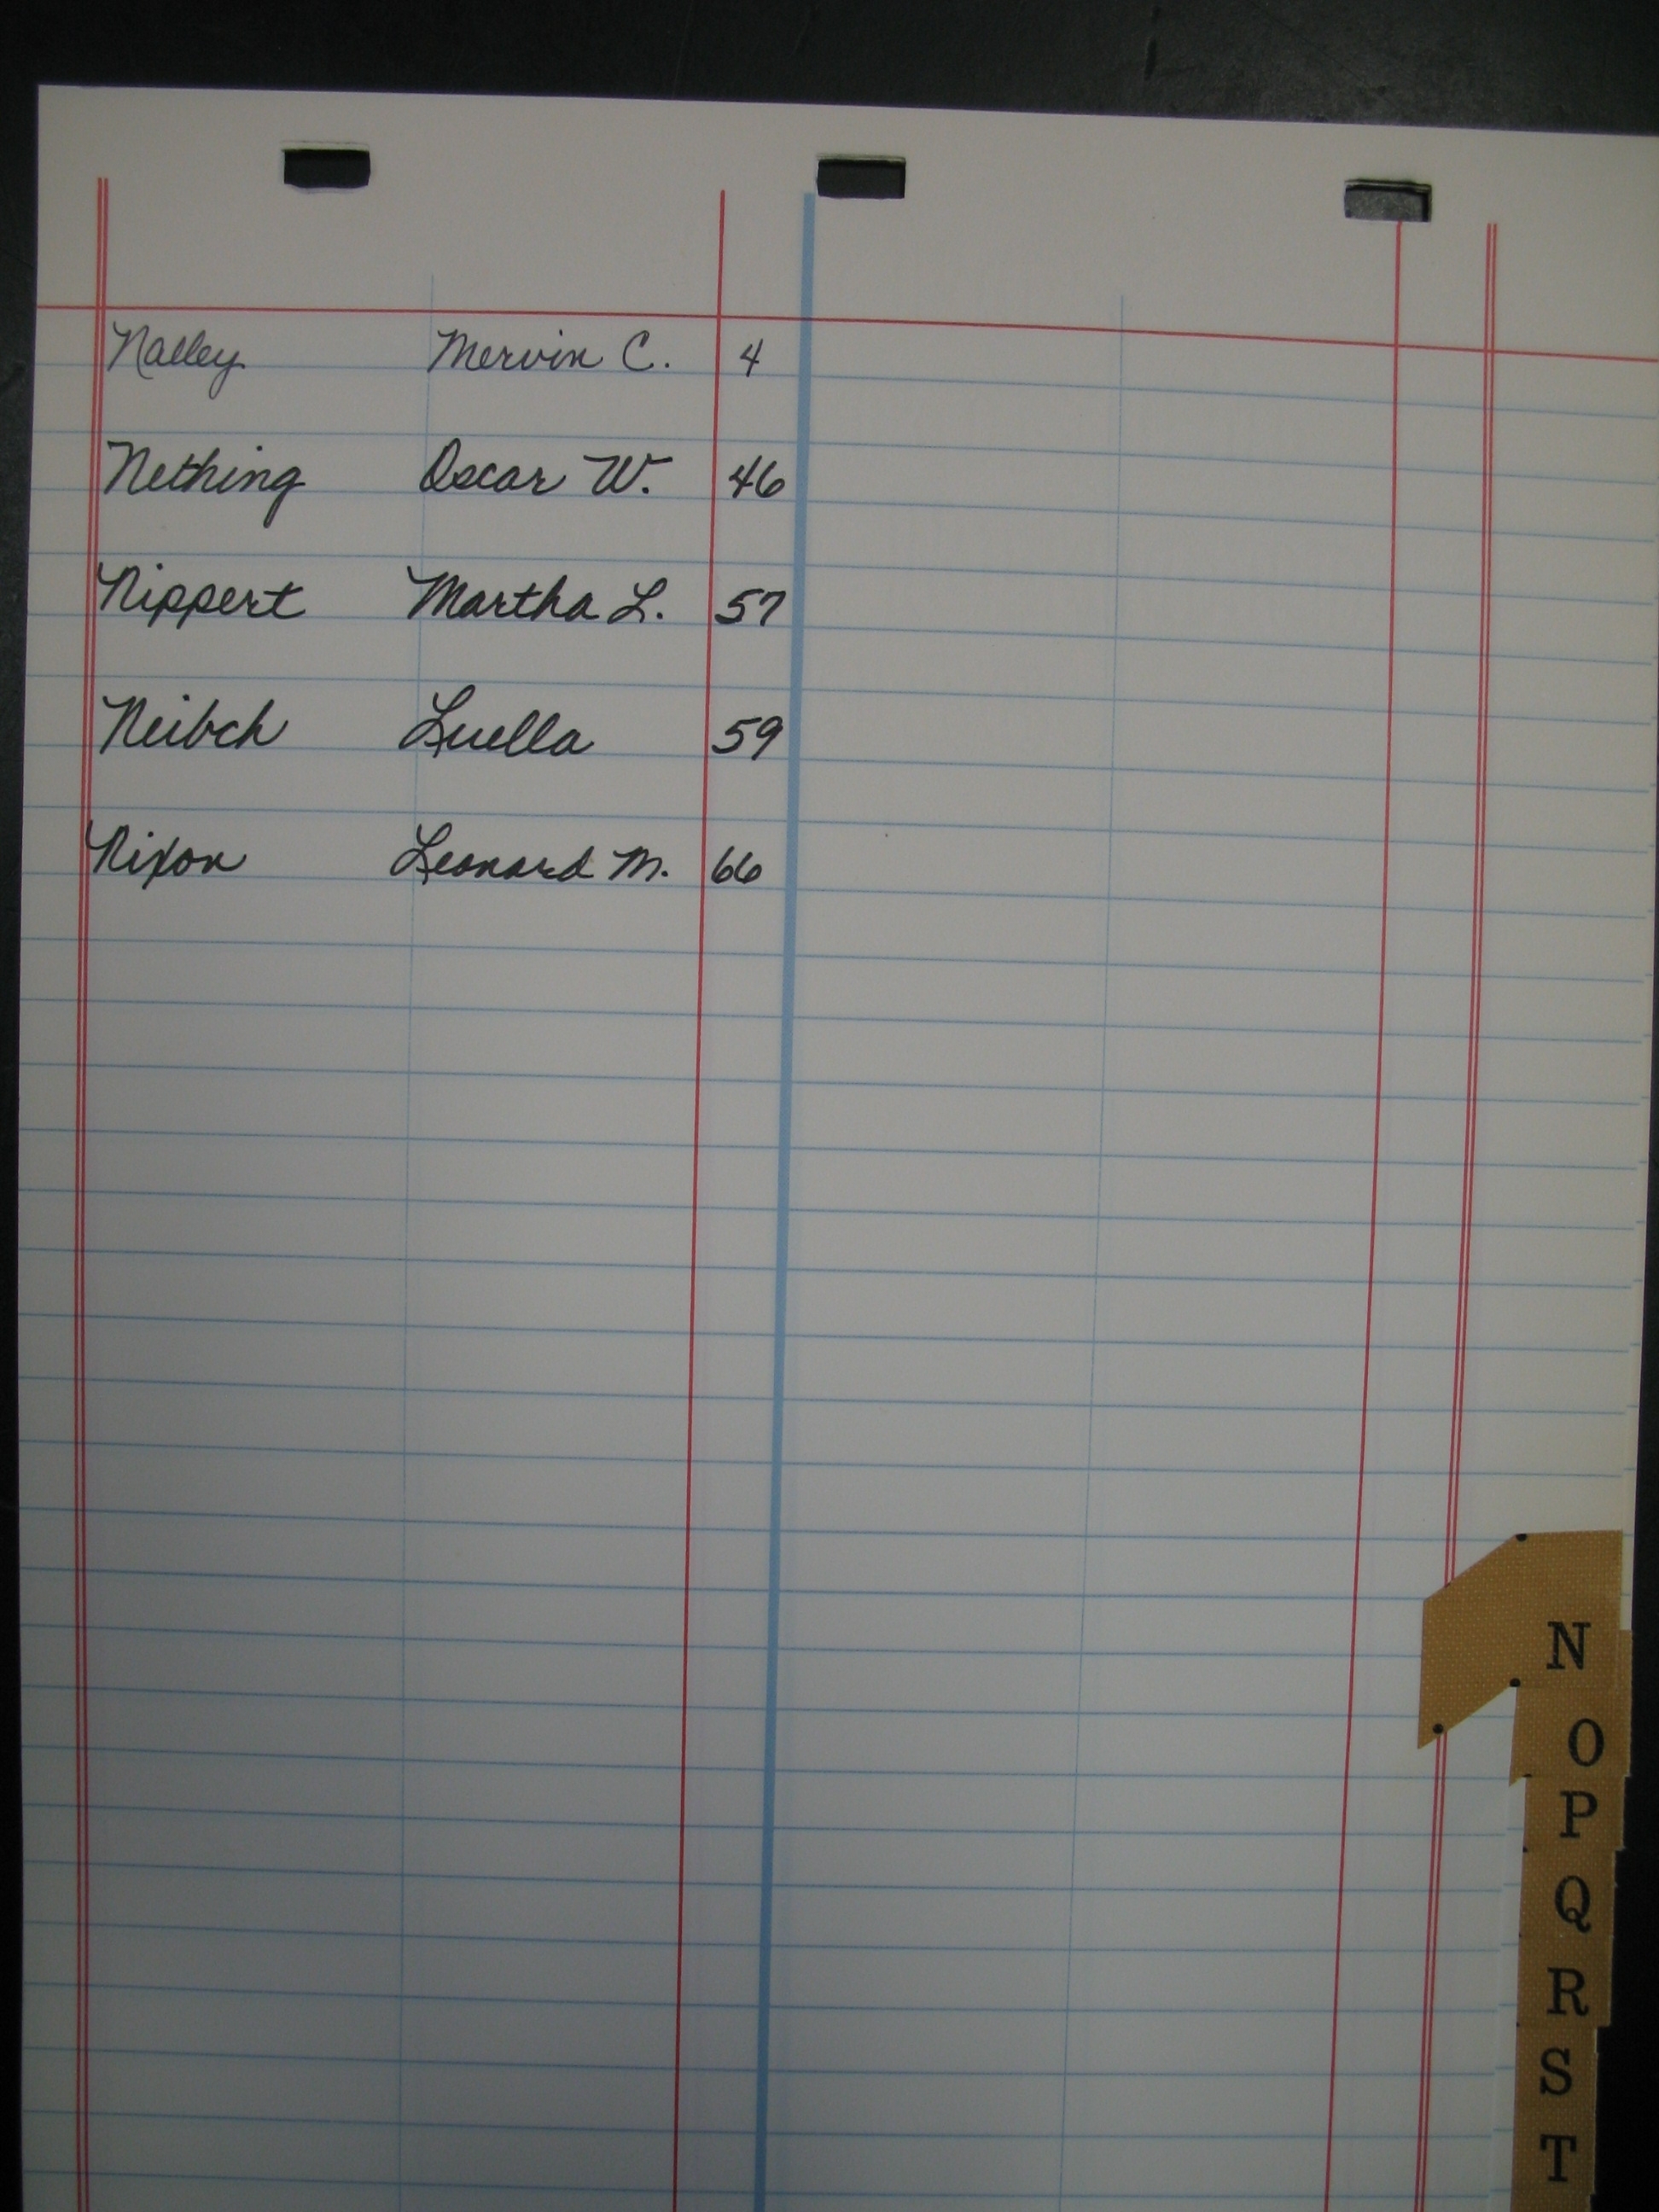 Nalley Mervin C. 4
Nething Oscar W. 46
Nippert Martha L. 57
Neibch Luella 59
Nixon Leonard M. 66
N
O
P
Q
R
S
T